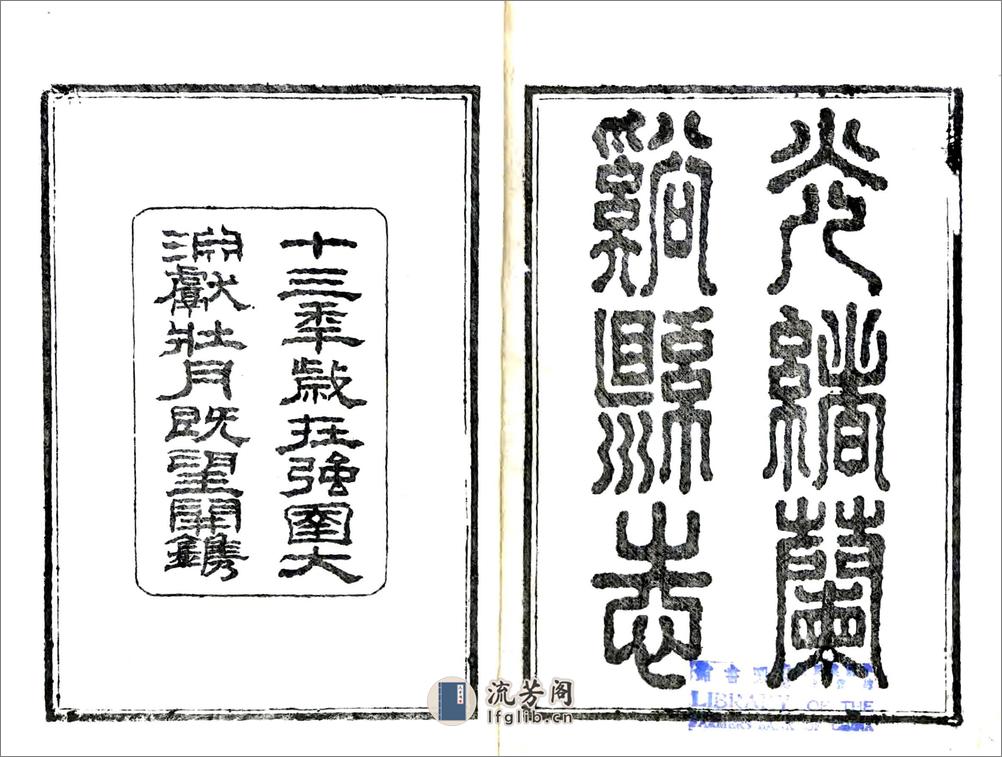 光緒蘭
谿縣志
十三年歲在強圉大
淵獻壯月既望開鐫
LIBRARY OF THE
FARMERS BANK OF CHINA
流芳阁
lfglib.cn